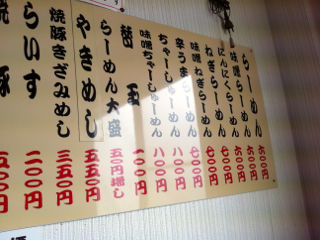 らーめん 六〇〇円
味噌らーめん 六〇〇円
にんにくらーめん 六〇〇円
ねぎらーめん 七〇〇円
味噌ねぎらーめん 七〇〇円
辛うまらーめん 七〇〇円
ちゃーしゅーめん 八〇〇円
味噌ちゃーしゅーめん 八〇〇円
替玉 一〇〇円
らーめん大盛 五〇円増し
やきめし 五五〇円
焼豚きざみめし 三五〇円
らいす 二〇〇円
焼豚 五〇〇円